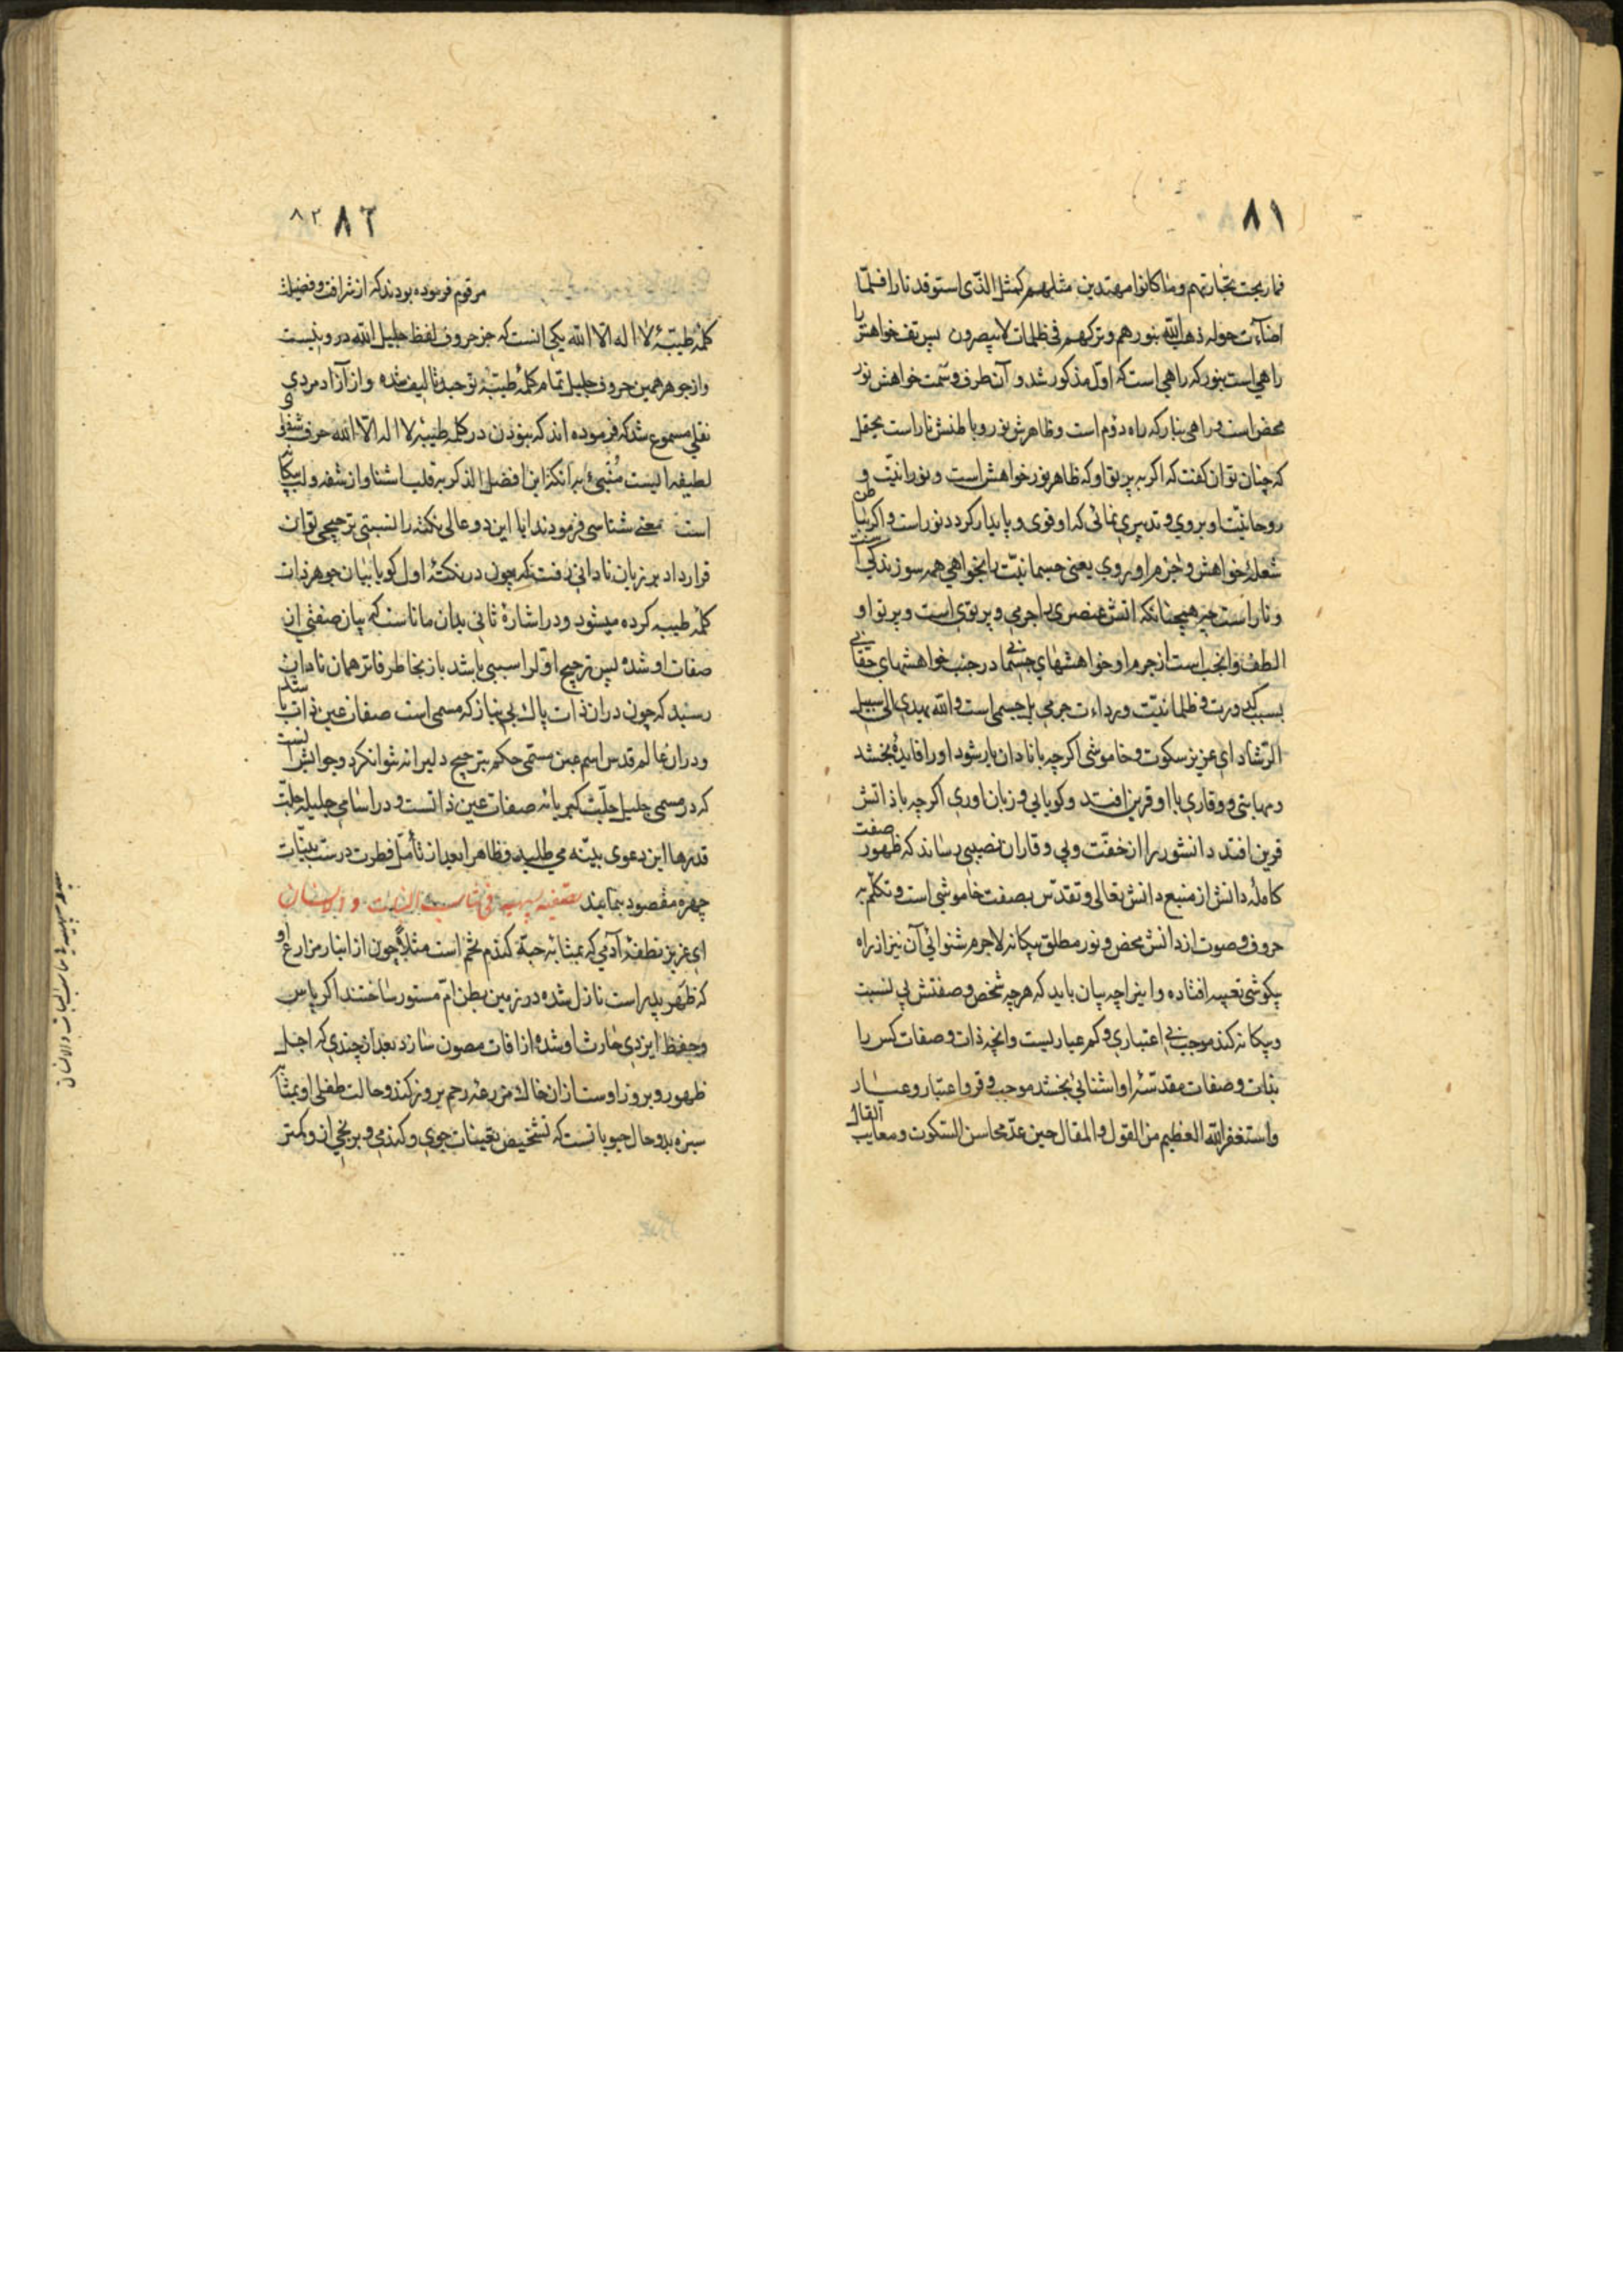 ۸۱
فما ربحت تجارتهم وما كانوا مهتدين مثلهم كمثل الذی استوقد نارا فلمّا
اضاءت حوله ذهب الله بنورهم وتركهم فی ظلمات لا يبصرون پس تف خواهش را
راهی است بنور که راهی است که اول مذکور شد و آن طرف و سمت خواهش نور
محض است و راهی بنار که راه دوم است و ظاهرش نور و باطنش نار است بحقل
که چنان توان گفت که اگر به پرتو او که ظاهر نور خواهش است و نورانیّت و
روحانیّت او بروی و تدبیری نمائی که او قوی و پایدار گردد نور است و اگر بباطن
شعلهٔ خواهش و جرم او بروی یعنی جسمانیّت را بخواهی همه سوزندگی است
و نار است چه همچنانکه اتش عنصری را جرمی و پرتوی است و پرتو او
الطف و انجب است از جرم او خواهشهای جسمانی در جنب خواهشهای حقانی
بسبب کدورت و ظلمانیّت و رداءت جرمی بل جسمی است والله یهدی الی سبیل
الرّشاد ای عزیز سکوت و خاموشی اگر چه با نادان یار شود او را فایده بخشد
و مهابتی و وقاری با او قرین افتد و گویایی و زبان اوری اگر چه با ذاتش
قرین افتد دانشور را از خفّت و بی وقاران نصیبی رساند که ظهور صفت
کامله دانش از منبع دانش تعالی و تقدّس بصفت خاموشی است و تکلّم به
حروف و صوت از دانش محض و نور مطلق بیکانه لاجرم شنوائی آن نیز از راه
بیکوشی تعبیه افتاده و اینرا چه بیان باید که هرچه شخص و صفتش بی نسبت
و بیکانه کند موجب بی اعتباری و کم عیاریست و انچه ذات و صفات کس را
بذات و صفات مقدّسهٔ او اشنائی بخشد موجب وقر و اعتبار و عیار
واستغفر الله العظیم من القول والمقال حین عدّ محاسن السکوت ومعایب القال
۸۲ ۸۲
مرقوم فرموده بودند که از شرافت و فضیلت
کلمهٔ طیّبهٔ لا اله الا الله یکی انست که جز حروف لفظ جلیل الله درو نیست
و از جوهر همین حروف جلیل تمام کلمهٔ طیّبهٔ توحید تالیف شده و از آزاد مردی
نقلی مسموع شد که فرموده اند که نبودن در کلمه طیبهٔ لا اله الا الله حرف شفوی
لطیفه ایست منبیء بر انکه این افضل الذکر به قلب اشنا و از شفه و لب بیکانه
است معنی شناسی فرمودند ایا این دو عالی نکته را نسبتی ترجیحی توان
قرار داد بر زبان نادانی رفت که چون در نکتهٔ اول کویا بیان جوهر ذات
کلمه طیبه کرده میشود و در اشارهٔ ثانی بدان ماناست که بیان صفتی از
صفات او شده پس ترجیح اوّل را سببی باشد باز بخاطر فاتر همان نادان
رسید که چون در ان ذات پاک بی نیاز که مسمی است صفات عین ذات باشد
و در ان عالم قدس اسم عین مسمّی حکم بترجیح دلیرانه نتوانکرد و جوابش انست
که در مسمی جلیل جلّت کبریائه صفات عین ذاتست و در اسامی جلیله جلّت
قدرها این دعوی بیّنه می طلبد و ظاهرا بعد از تأمّل فطرت درست بینات
چهره مقصود بنمایند تصفیه بهیه فی تناسب النبات والانسان
ای عزیز نطفهٔ آدمی که بمثابه حبّه گندم تخم است مثلاً چون از انبار مزارع او
که ظهر پدر است نازل شده در زمین بطن امّ مستور ساختند اگر پاس
و حفظ ایزدی حارث او شده از افات مصون سازد بعد از چندی که اجل
ظهور و بروز اوست از ان خاک مزرعه رحم بروز کند و حالت طفلی او بمثابه
سبزه بدو حال حبوباتست که تشخیص تعینات جوی و گندمی و برنجی ان و کمتر
تناسب النبات والانسان